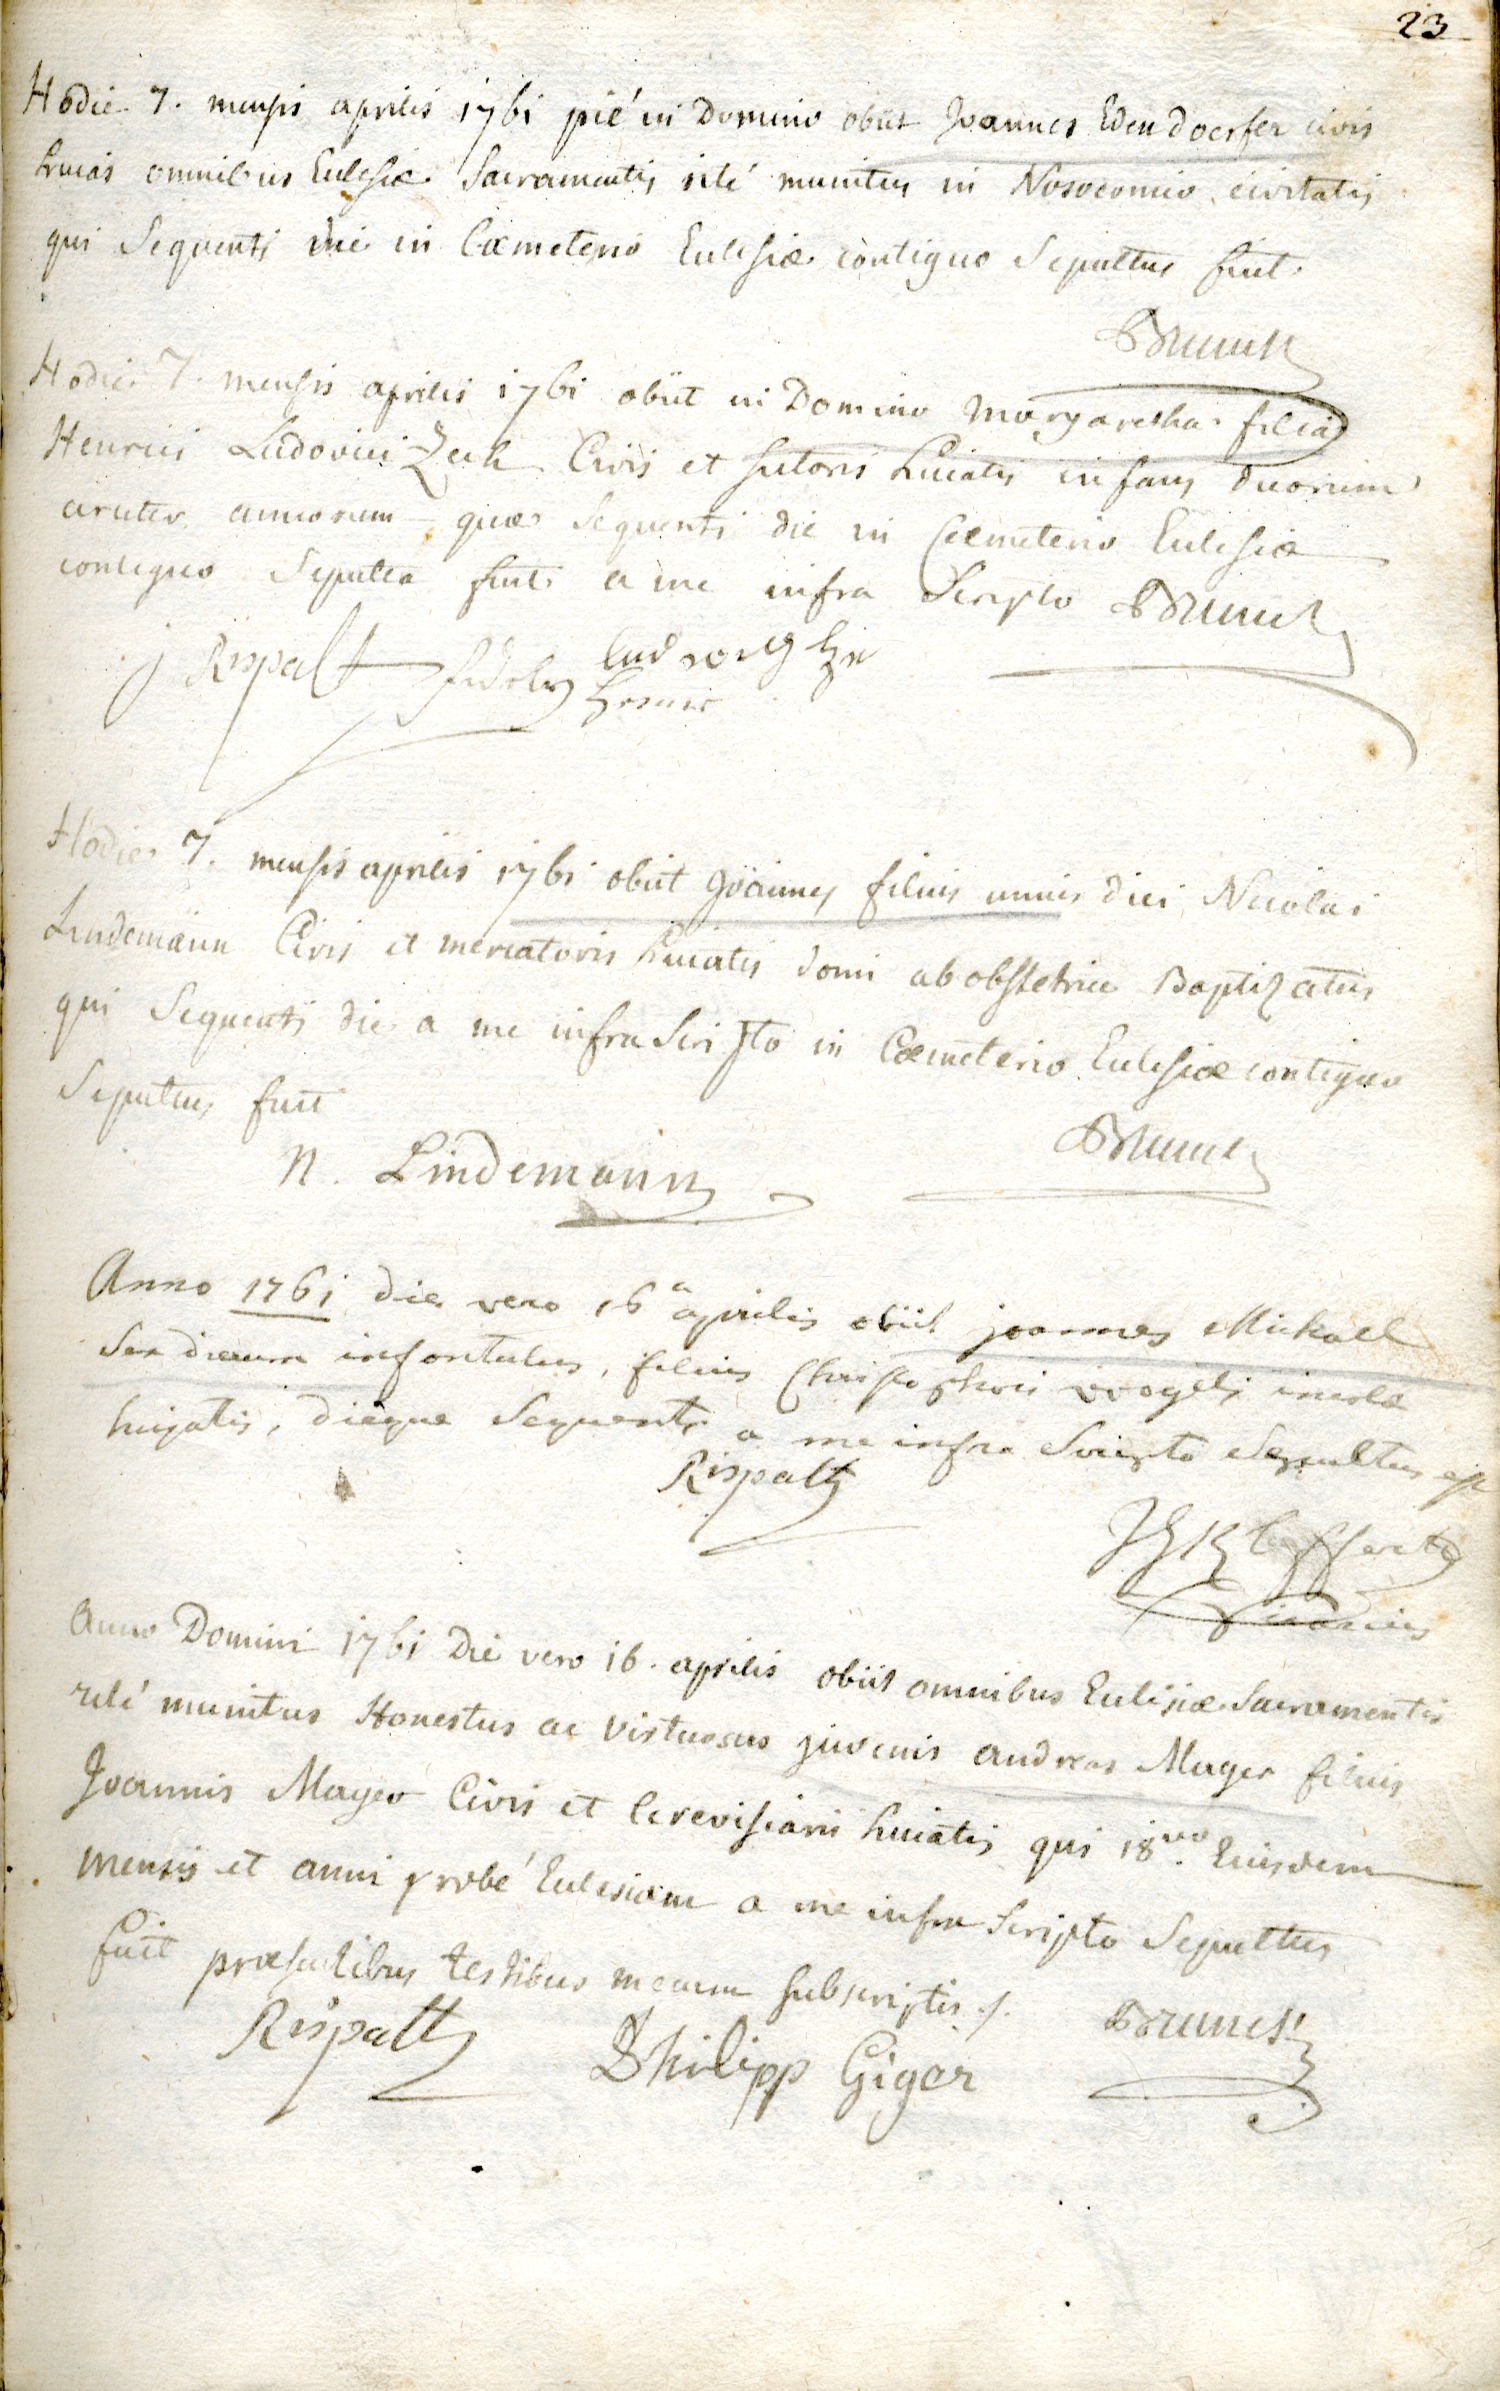 23
Hodie 7. mensis aprilis 1761 pié in Domino obiit Joannes Edendoerfer civis
hucas omnibus Eclesiæ Sacramentis rité munitus in Nosocomio civitatis
qui Sequenti die in Cæmeterio Eclesiæ contiguo Sepultus fuit.
Brunck
Hodie 7. mensis aprilis 1761 obiit in Domino Margaretha filia
Henrici Ludovici Zeck Civis et sutoris huiatis infans duorum
circiter annorum quæ Sequenti die in Cæmeterio Eclesiæ
contiguo Sepulta fuit a me infra Scripto Brunck
J Rispalt ludwig
Hodie 7. mensis aprilis 1761 obiit Joannes filius unius diei Nicolai
Lindemann Civis et mercatoris huiatis domi ab obstetrice Baptizatus
qui Sequenti die a me infra Scripto in Cæmeterio Eclesiæ contiguo
Sepultus fuit
Brunck
N. Lindemann
Anno 1761 die vero 16a aprilis obiit joannes Michael
Sex dierum infantulus, filius Christophori vvogely incolæ
hujatis, dieque Sequenti a me infra Scripto Sepultus est
Rispalt
Vicarius
Anno Domini 1761 Die vero 16. aprilis obiit omnibus Eclesiæ Sacramentis
rité munitus Honestus ac virtuosus juvenis andreas Mager filius
Joannis Mager Civis et Cerevisiarii huiatis qui 18vo. Eiusdem
mensis et anni probé Eclesiam a me infra Scripto Sepultus
fuit præsentibus testibus mecum subscriptis ./.
Brunck
Rispalt Philipp Giger